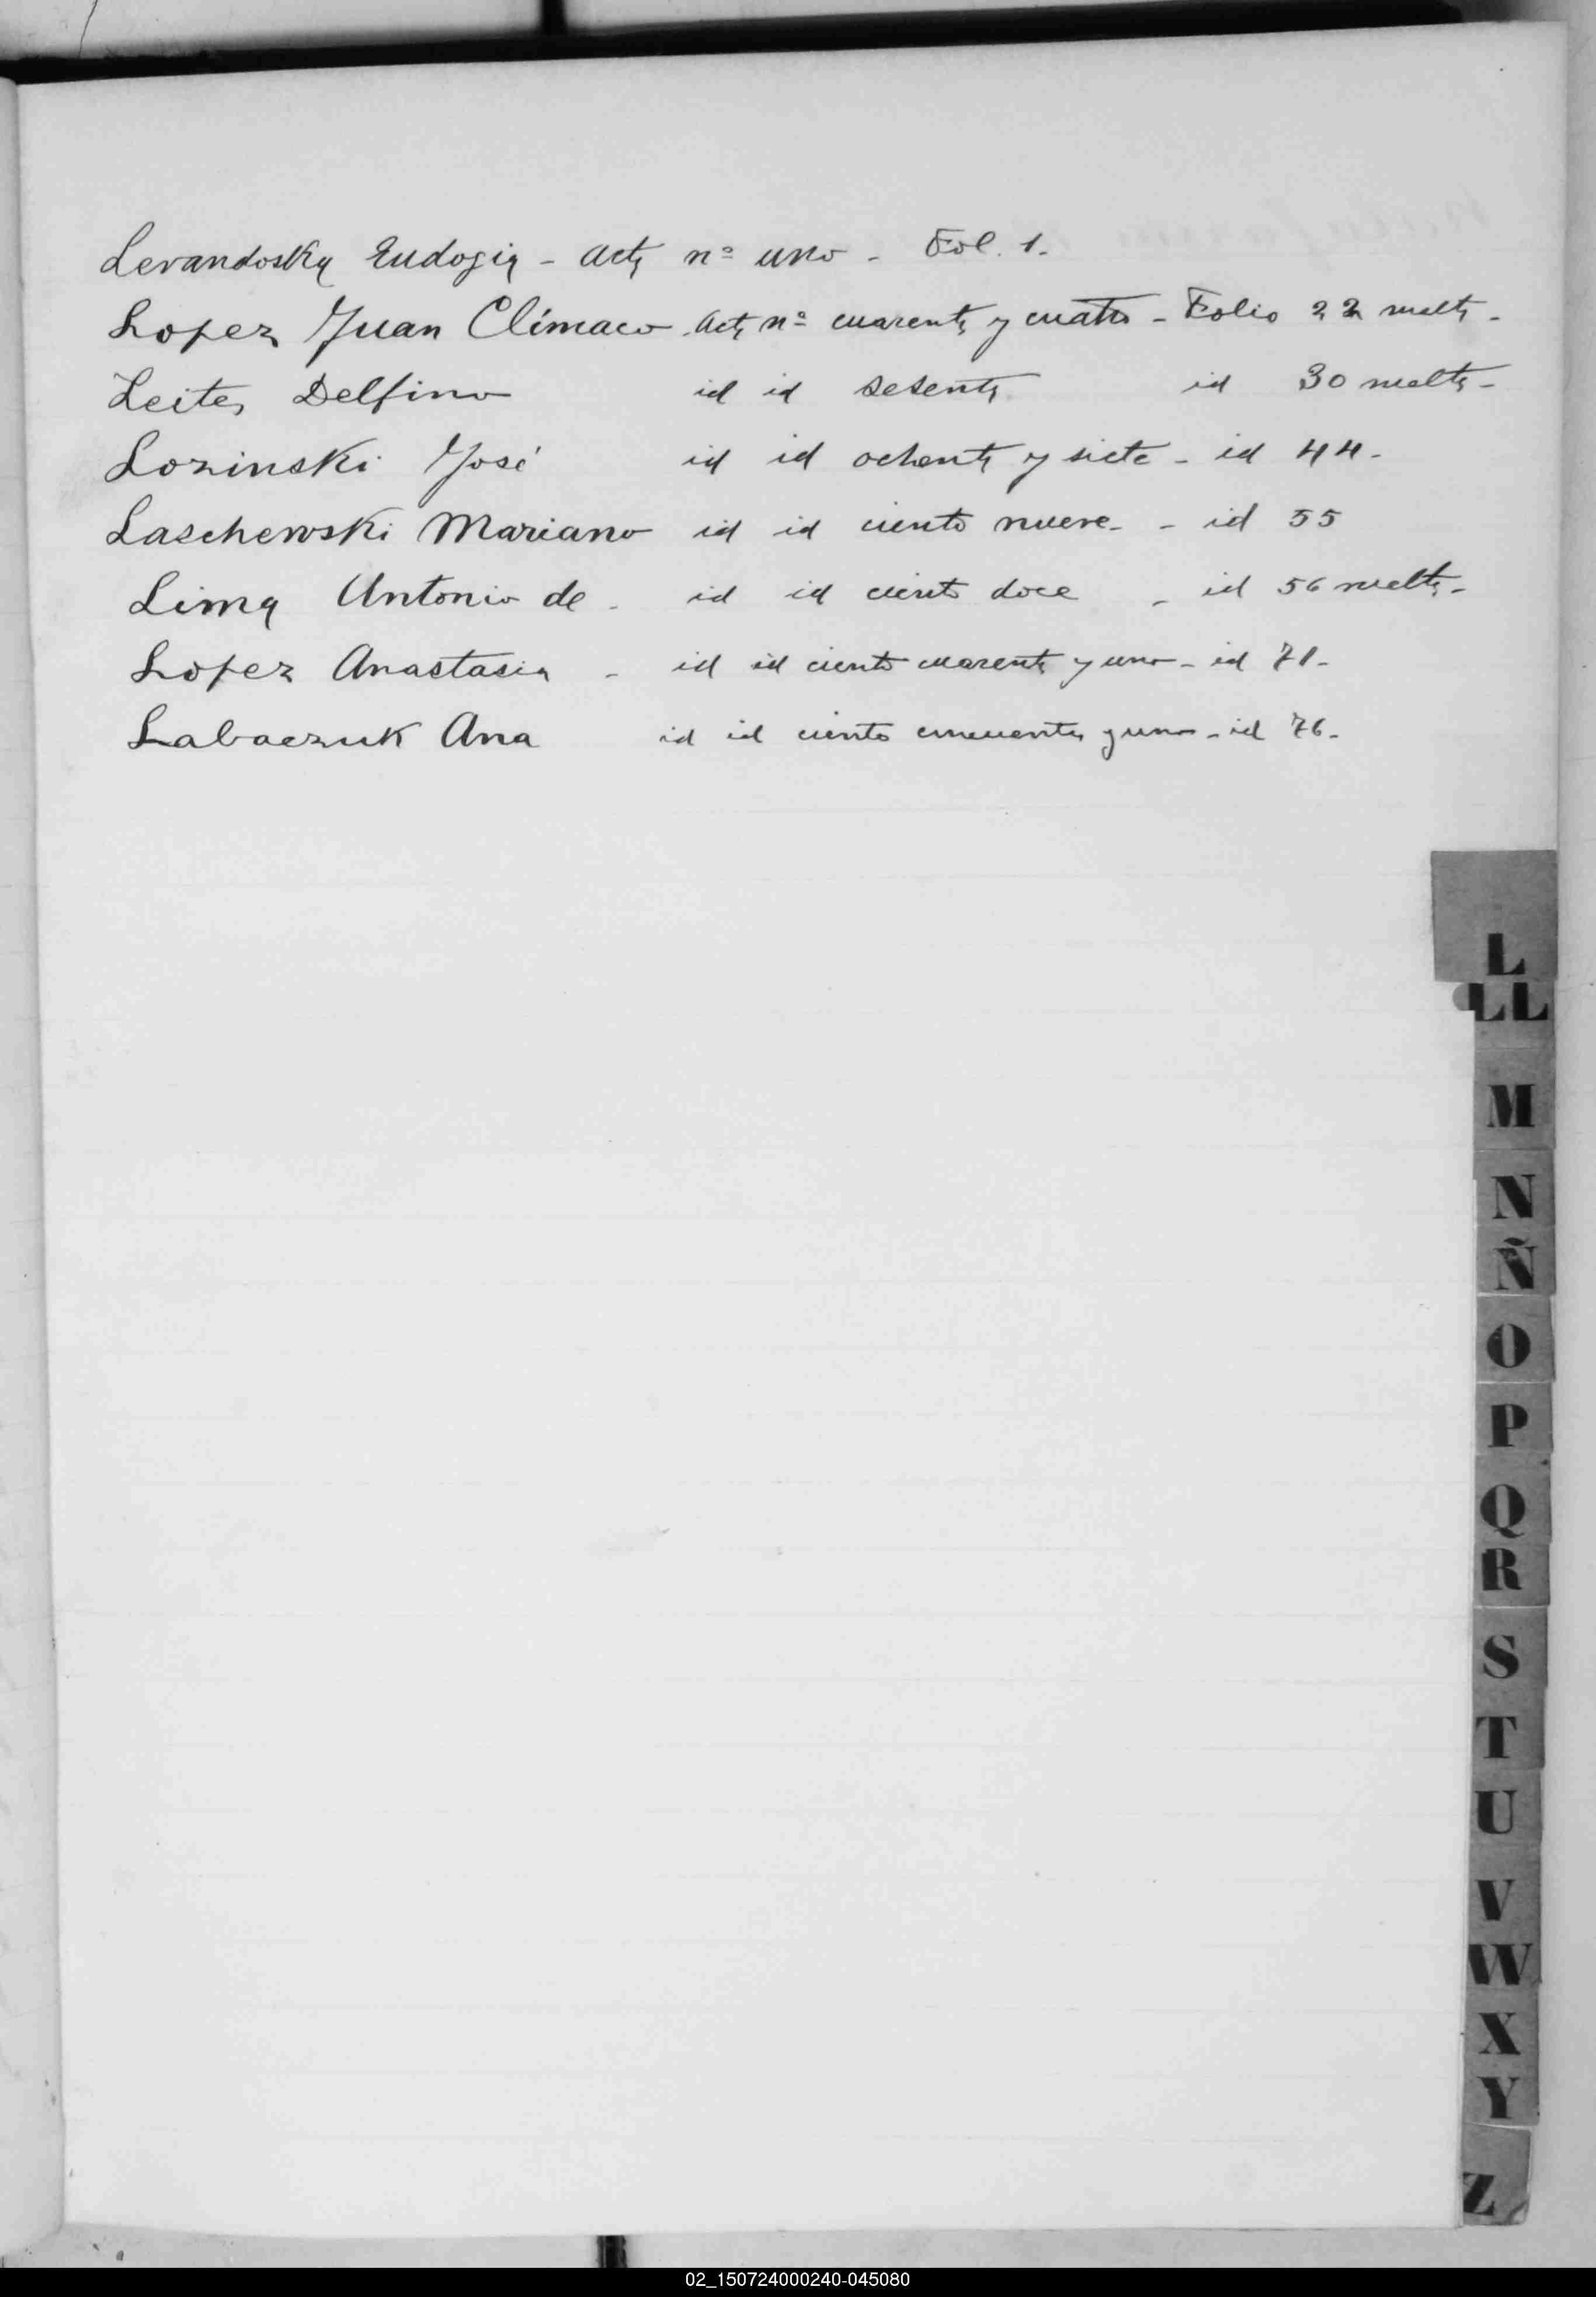 Levandosky Eudogia - Acta nº uno - Fol. 1.
Lopez Juan Clímaco. Acta nº cuarenta y cuatro - Folio 22 vuelta -
Leites Delfino id id sesenta id 30 vuelta -
Lozinski José id id ochenta y siete - id 44 -
Laschewski Mariano id id ciento nueve - - id 55
Lima Antonio de - id id ciento doce - id 56 vuelta -
Lopez Anastasia - id id ciento cuarenta y uno - id 71 -
Labaczuk Ana id id ciento cincuenta y uno - id 76 -
L
LL
M
N
Ñ
O
P
Q
R
S
T
U
V
W
X
Y
Z
02_150724000240-045080